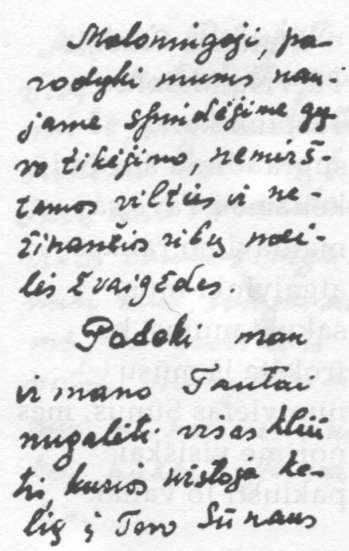 Maloningoji, pa-
rodyki mums nau-
jame spindėjime gy-
vo tikėjimo, nemirš-
tamos vilties ir ne-
žinančios ribų mei-
lės žvaigždes.
Padėki man
ir mano Tautai
nugalėti visas kliū
tis, kurios užstoja ke-
lią į Tavo Sūnaus